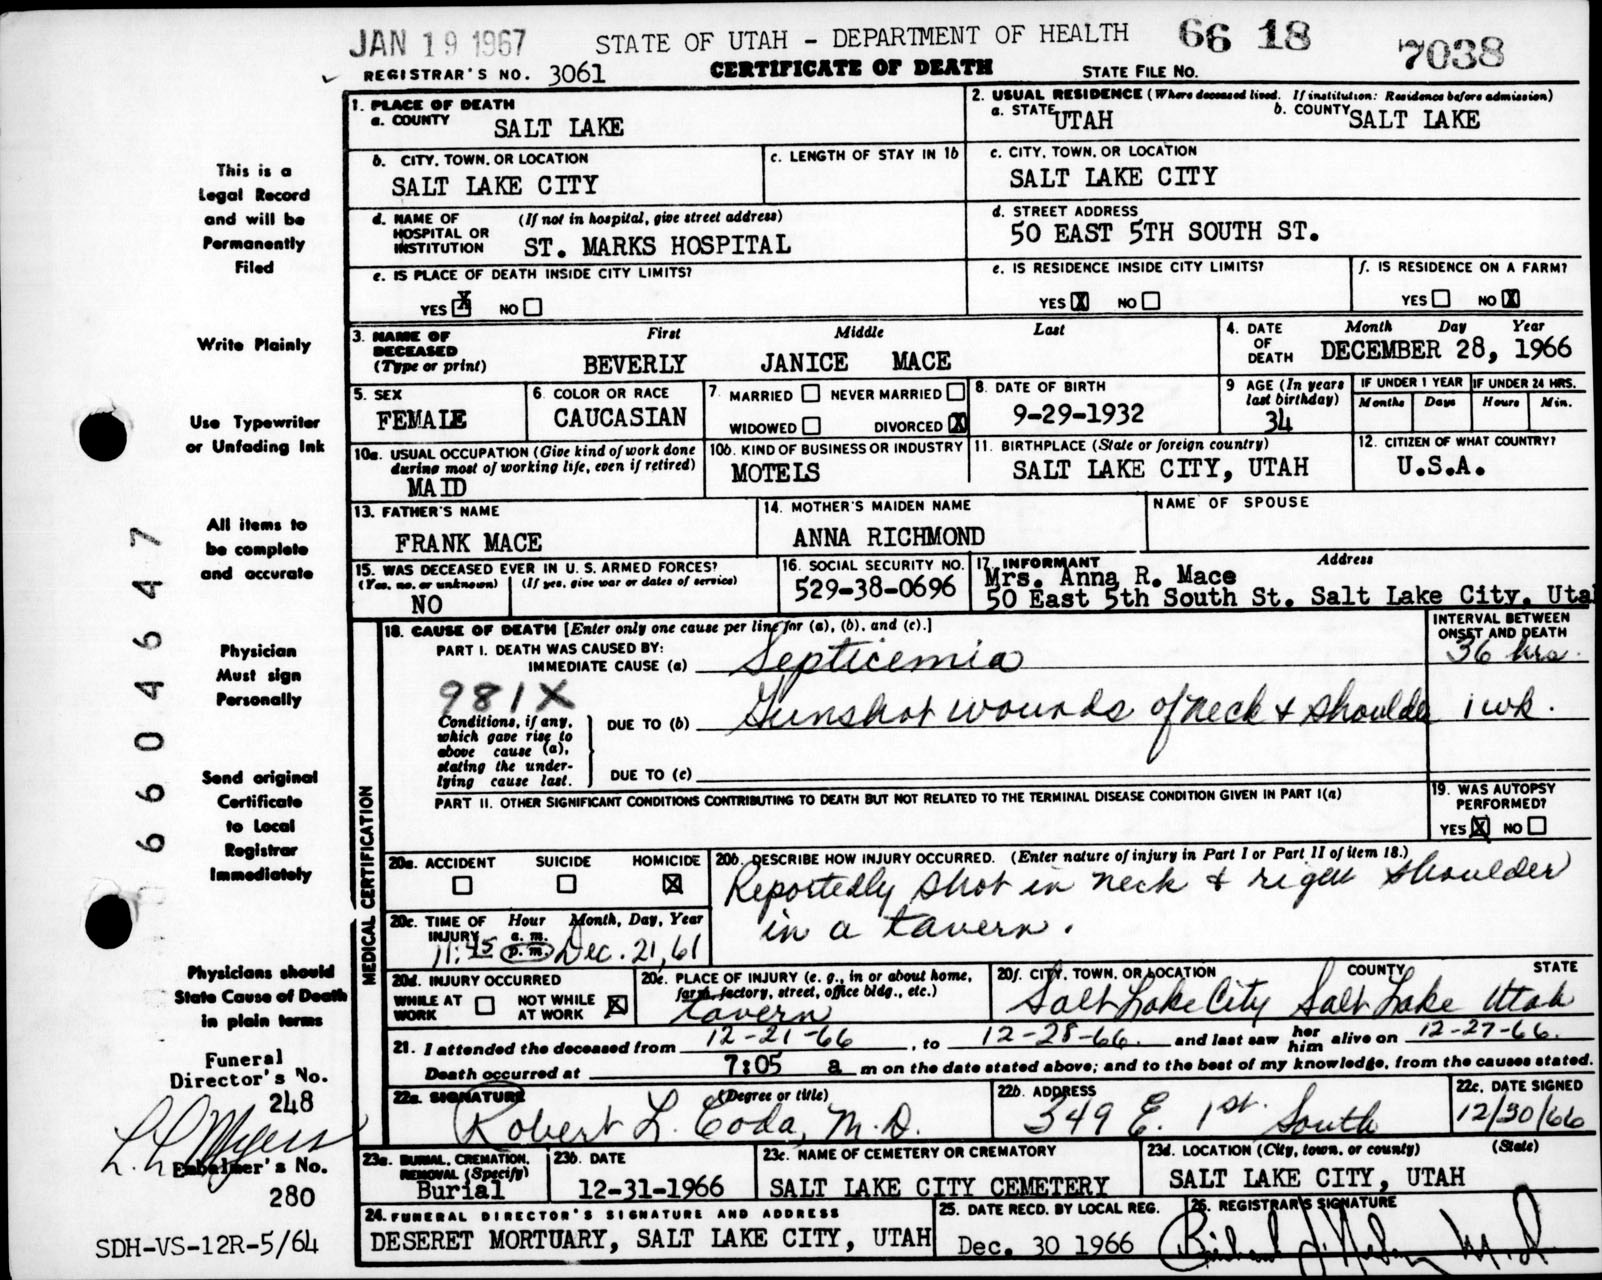 JAN 19 1967 STATE OF UTAH - DEPARTMENT OF HEALTH 66 18 7038
REGISTRAR'S NO. 3061 CERTIFICATE OF DEATH STATE FILE NO.
This is a
Legal Record
and will be
Permanently
Filed
Write Plainly
Use Typewriter
or Unfading Ink
All items to
be complete
and accurate
Physician
Must sign
Personally
Send original
Certificate
to Local
Registrar
Immediately
Physicians should
State Cause of Death
in plain terms
Funeral
Director's No.
248
L. L. Myers
Embalmer's No.
280
SDH-VS-12R-5/64
6604647
1. PLACE OF DEATH
a. COUNTY SALT LAKE
2. USUAL RESIDENCE (Where deceased lived. If institution: Residence before admission)
a. STATE UTAH b. COUNTY SALT LAKE
b. CITY, TOWN, OR LOCATION
SALT LAKE CITY
c. LENGTH OF STAY IN 1b
c. CITY, TOWN, OR LOCATION
SALT LAKE CITY
d. NAME OF HOSPITAL OR INSTITUTION (If not in hospital, give street address)
ST. MARKS HOSPITAL
d. STREET ADDRESS
50 EAST 5TH SOUTH ST.
e. IS PLACE OF DEATH INSIDE CITY LIMITS?
YES X NO
e. IS RESIDENCE INSIDE CITY LIMITS?
YES X NO
f. IS RESIDENCE ON A FARM?
YES NO X
3. NAME OF DECEASED (Type or print) First Middle Last
BEVERLY JANICE MACE
4. DATE OF DEATH Month Day Year
DECEMBER 28, 1966
5. SEX
FEMALE
6. COLOR OR RACE
CAUCASIAN
7. MARRIED NEVER MARRIED
WIDOWED DIVORCED X
8. DATE OF BIRTH
9-29-1932
9 AGE (In years last birthday)
34
IF UNDER 1 YEAR IF UNDER 24 HRS.
Months Days Hours Min.
10a. USUAL OCCUPATION (Give kind of work done during most of working life, even if retired)
MAID
10b. KIND OF BUSINESS OR INDUSTRY
MOTELS
11. BIRTHPLACE (State or foreign country)
SALT LAKE CITY, UTAH
12. CITIZEN OF WHAT COUNTRY?
U.S.A.
13. FATHER'S NAME
FRANK MACE
14. MOTHER'S MAIDEN NAME
ANNA RICHMOND
NAME OF SPOUSE
15. WAS DECEASED EVER IN U. S. ARMED FORCES?
(Yes, no, or unknown) (If yes, give war or dates of service)
NO
16. SOCIAL SECURITY NO.
529-38-0696
17. INFORMANT Address
Mrs. Anna R. Mace
50 East 5th South St. Salt Lake City, Uta
MEDICAL CERTIFICATION
18. CAUSE OF DEATH [Enter only one cause per line for (a), (b), and (c).]
PART I. DEATH WAS CAUSED BY:
IMMEDIATE CAUSE (a) Septicemia
INTERVAL BETWEEN ONSET AND DEATH
36 hrs.
981X
Conditions, if any, which gave rise to above cause (a), stating the underlying cause last.
DUE TO (b) Gunshot wounds of neck & shoulder 1 wk.
DUE TO (c)
PART II. OTHER SIGNIFICANT CONDITIONS CONTRIBUTING TO DEATH BUT NOT RELATED TO THE TERMINAL DISEASE CONDITION GIVEN IN PART I(a)
19. WAS AUTOPSY PERFORMED?
YES X NO
20a. ACCIDENT SUICIDE HOMICIDE
X
20b. DESCRIBE HOW INJURY OCCURRED. (Enter nature of injury in Part I or Part II of item 18.)
Reportedly shot in neck & right shoulder
in a tavern.
20c. TIME OF INJURY Hour Month, Day, Year
11:45 a. m. p. m. Dec. 21, 61
20d. INJURY OCCURRED
WHILE AT WORK NOT WHILE AT WORK X
20e. PLACE OF INJURY (e. g., in or about home, farm, factory, street, office bldg., etc.)
tavern
20f. CITY, TOWN, OR LOCATION COUNTY STATE
Salt Lake City Salt Lake Utah
21. I attended the deceased from 12-21-66, to 12-28-66. and last saw her him alive on 12-27-66.
Death occurred at 7:05 a m on the date stated above; and to the best of my knowledge, from the causes stated.
22a. SIGNATURE (Degree or title)
Robert L. Coda, M.D.
22b. ADDRESS
349 E. 1st. South
22c. DATE SIGNED
12/30/66
23a. BURIAL, CREMATION, REMOVAL (Specify)
Burial
23b. DATE
12-31-1966
23c. NAME OF CEMETERY OR CREMATORY
SALT LAKE CITY CEMETERY
23d. LOCATION (City, town, or county) (State)
SALT LAKE CITY, UTAH
24. FUNERAL DIRECTOR'S SIGNATURE AND ADDRESS
DESERET MORTUARY, SALT LAKE CITY, UTAH
25. DATE RECD. BY LOCAL REG.
Dec. 30 1966
26. REGISTRAR'S SIGNATURE